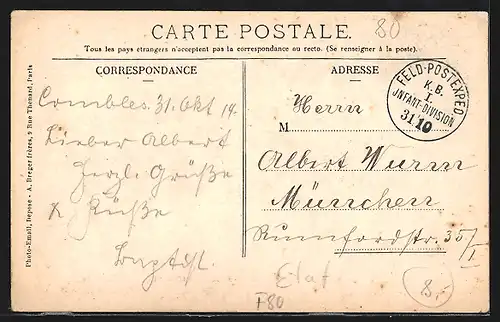 CARTE POSTALE.
80
Tous les pays étrangers n'acceptent pas la correspondance au recto. (Se renseigner à la poste).
CORRESPONDANCE
ADRESSE
FELD-POSTEXPED.
K.B.
I.
INFANT-DIVISION
31 10
Combles 31. Okt 14.
Lieber Albert
Herzl. Grüße
& Küße
Herrn
M
Albert Wurm
München
Rumfordstr. 35/I
F80
8.-
Photo-Email, Depose - A. Breger frères, 9 Rue Thenard, Paris